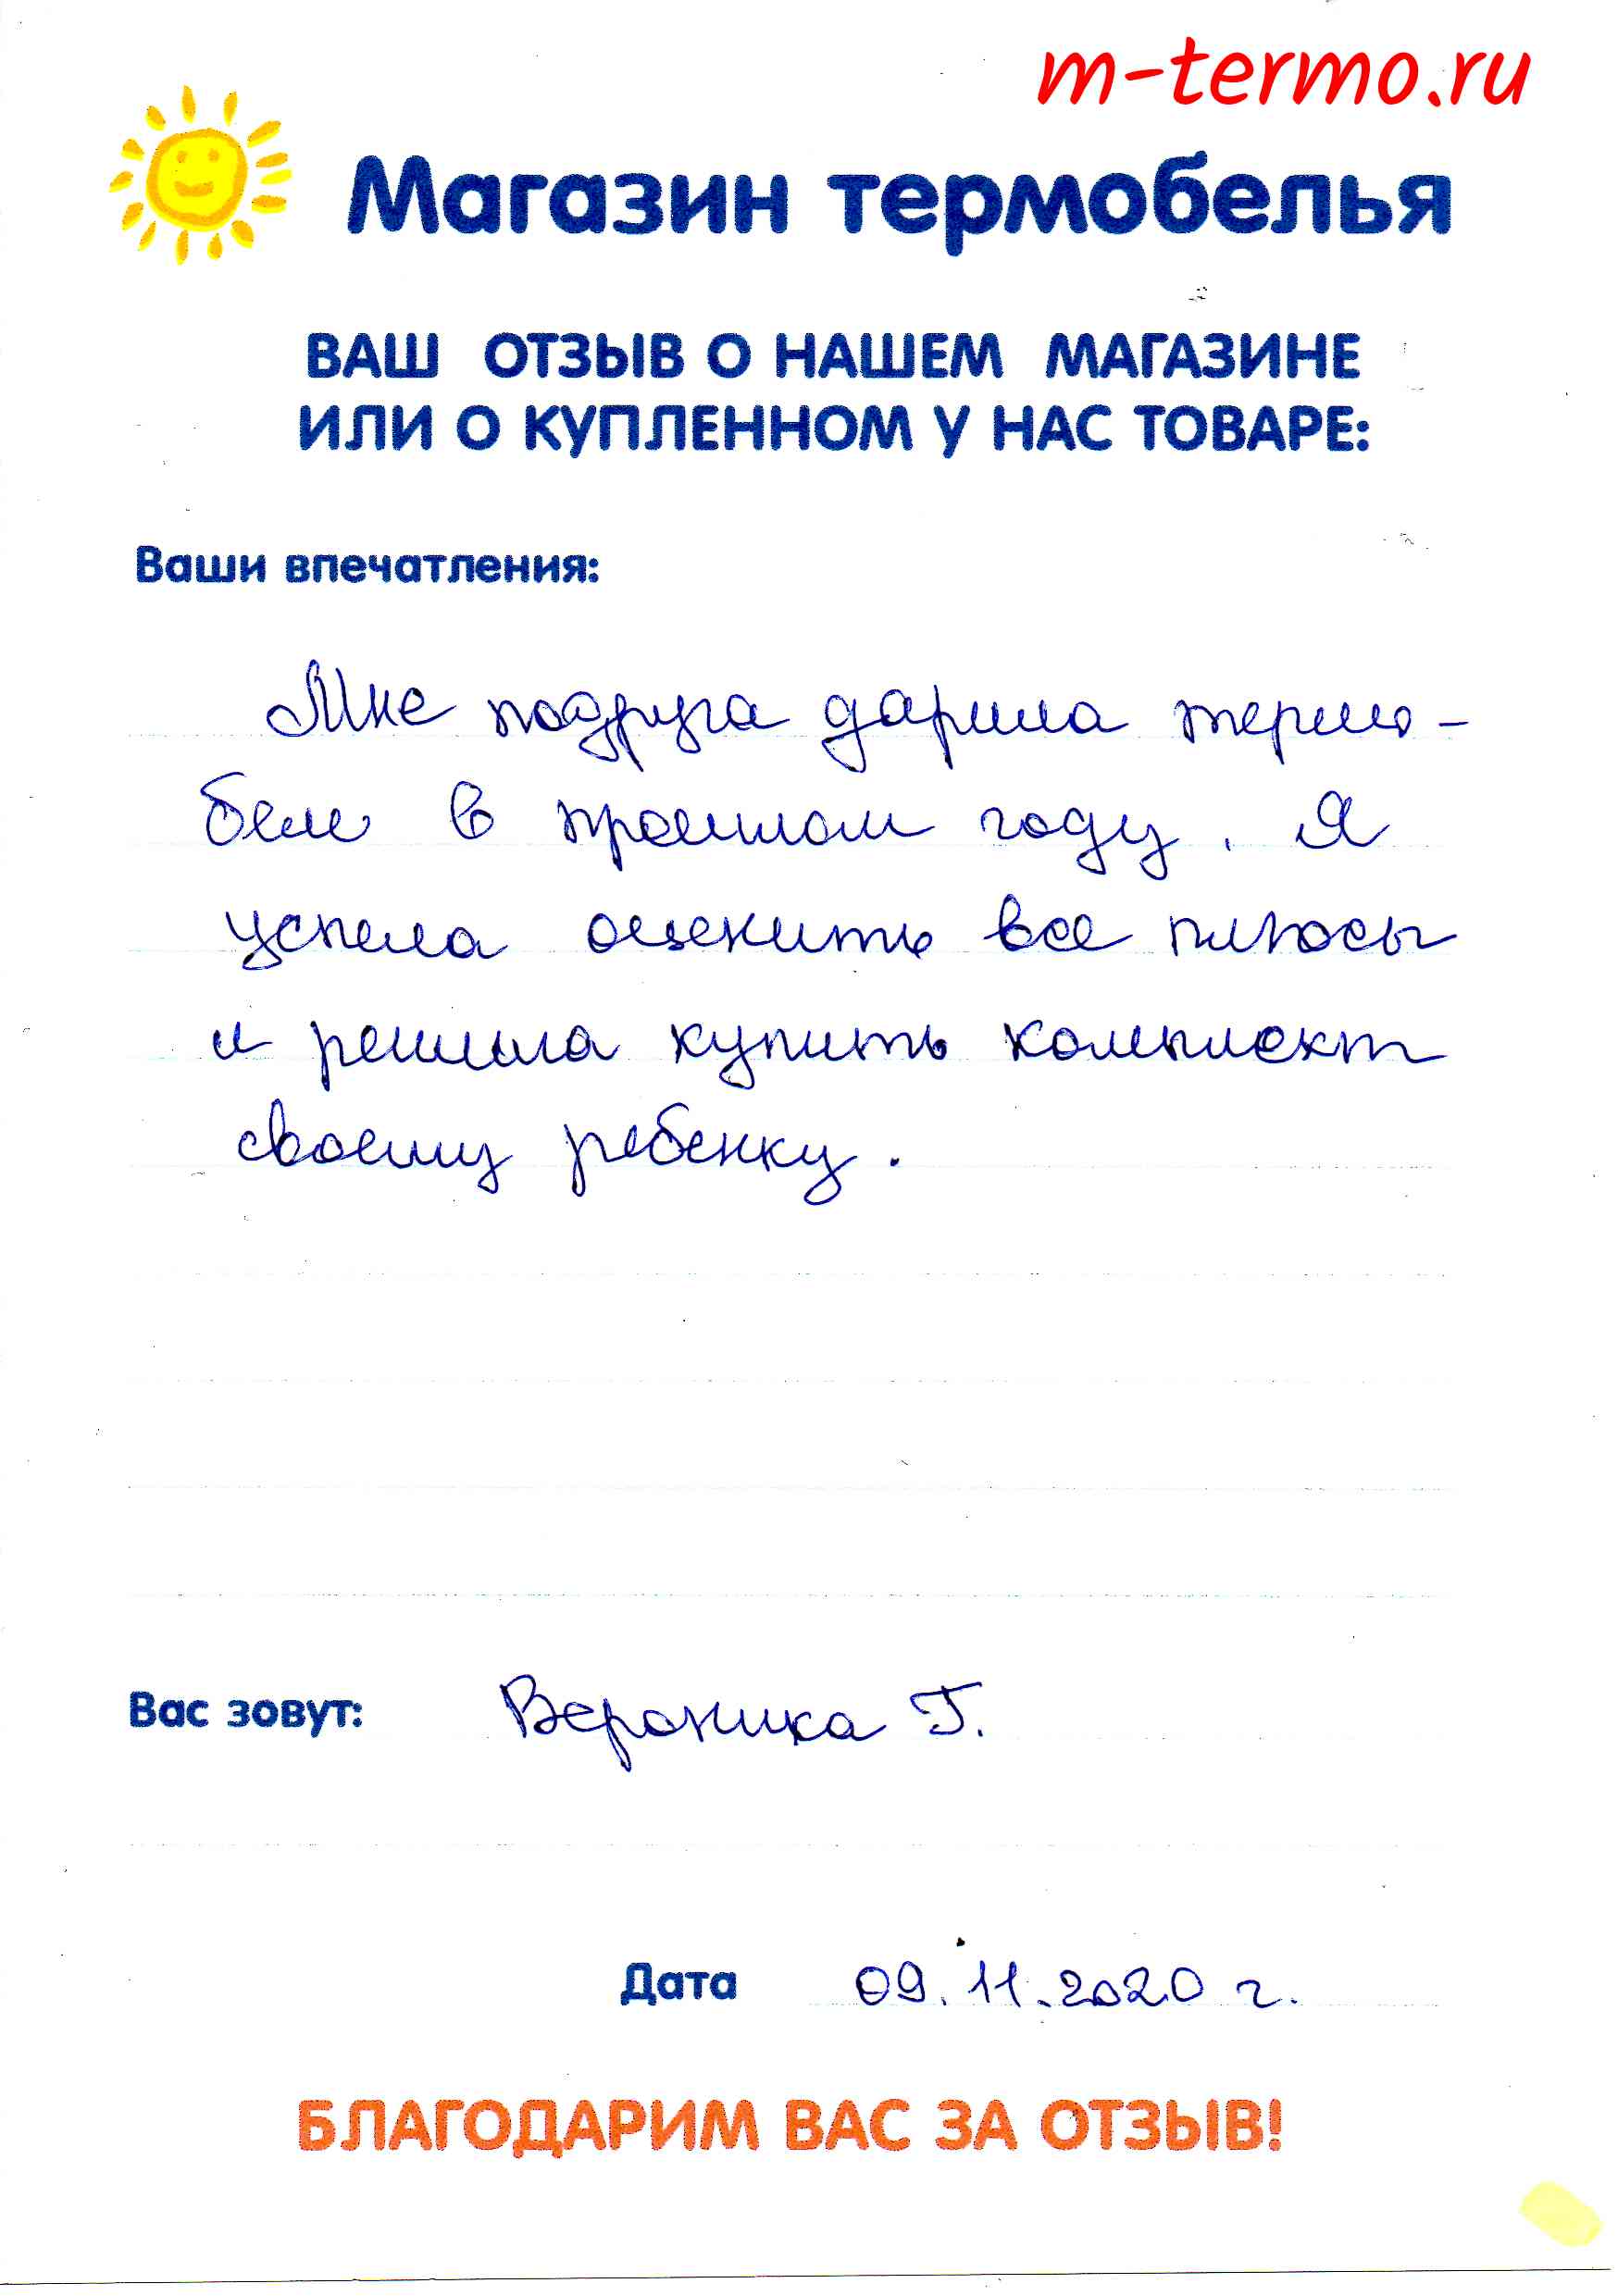 m-termo.ru
Магазин термобелья
ВАШ ОТЗЫВ О НАШЕМ МАГАЗИНЕ
ИЛИ О КУПЛЕННОМ У НАС ТОВАРЕ:
Ваши впечатления:
Мне подруга дарила термо-
белье в прошлом году. Я
успела оценить все плюсы
и решила купить комплект
своему ребенку.
Вас зовут: Вероника Г.
Дата 09.11.2020 г.
БЛАГОДАРИМ ВАС ЗА ОТЗЫВ!